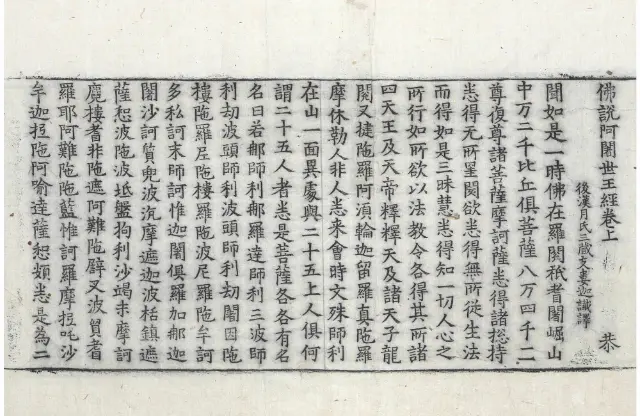 佛說阿闍世王經卷上 恭
後漢月氏三藏支婁迦讖譯
聞如是一時佛在羅閱祇耆闍崛山
中万二千比丘俱菩薩八万四千二
尊復尊諸菩薩摩訶薩悉得諸惣持
悉得无所罣閡欲悉得無所從生法
而得如是三昧慧悉得知一切人心之
所行如所欲以法教令各得其所諸
四天王及天帝釋釋天及諸天子龍
閱叉揵陁羅阿湏輪迦留羅真陁羅
摩休勒人非人悉来會時文殊師利
在山一面異處與二十五上人俱何
謂二十五人者悉是菩薩各各有名
名曰若那師利那羅達師利三波師
利劫波頭師利波頭師利劫闍因陁
樓陁羅尼陁樓羅陁波尼羅陁牟訶
多私訶末師訶惟迦闍俱羅加那迦
闍沙訶質兜波沉摩遮迦波栝鎮遮
薩惒波陁波坻盤拘利沙竭末摩訶
魔樓耆非陁遮阿難陁譬叉波質耆
羅耶阿難陁陁藍惟訶羅摩拉吒沙
牟迦拉陁阿喻達薩惒頞悉是為二